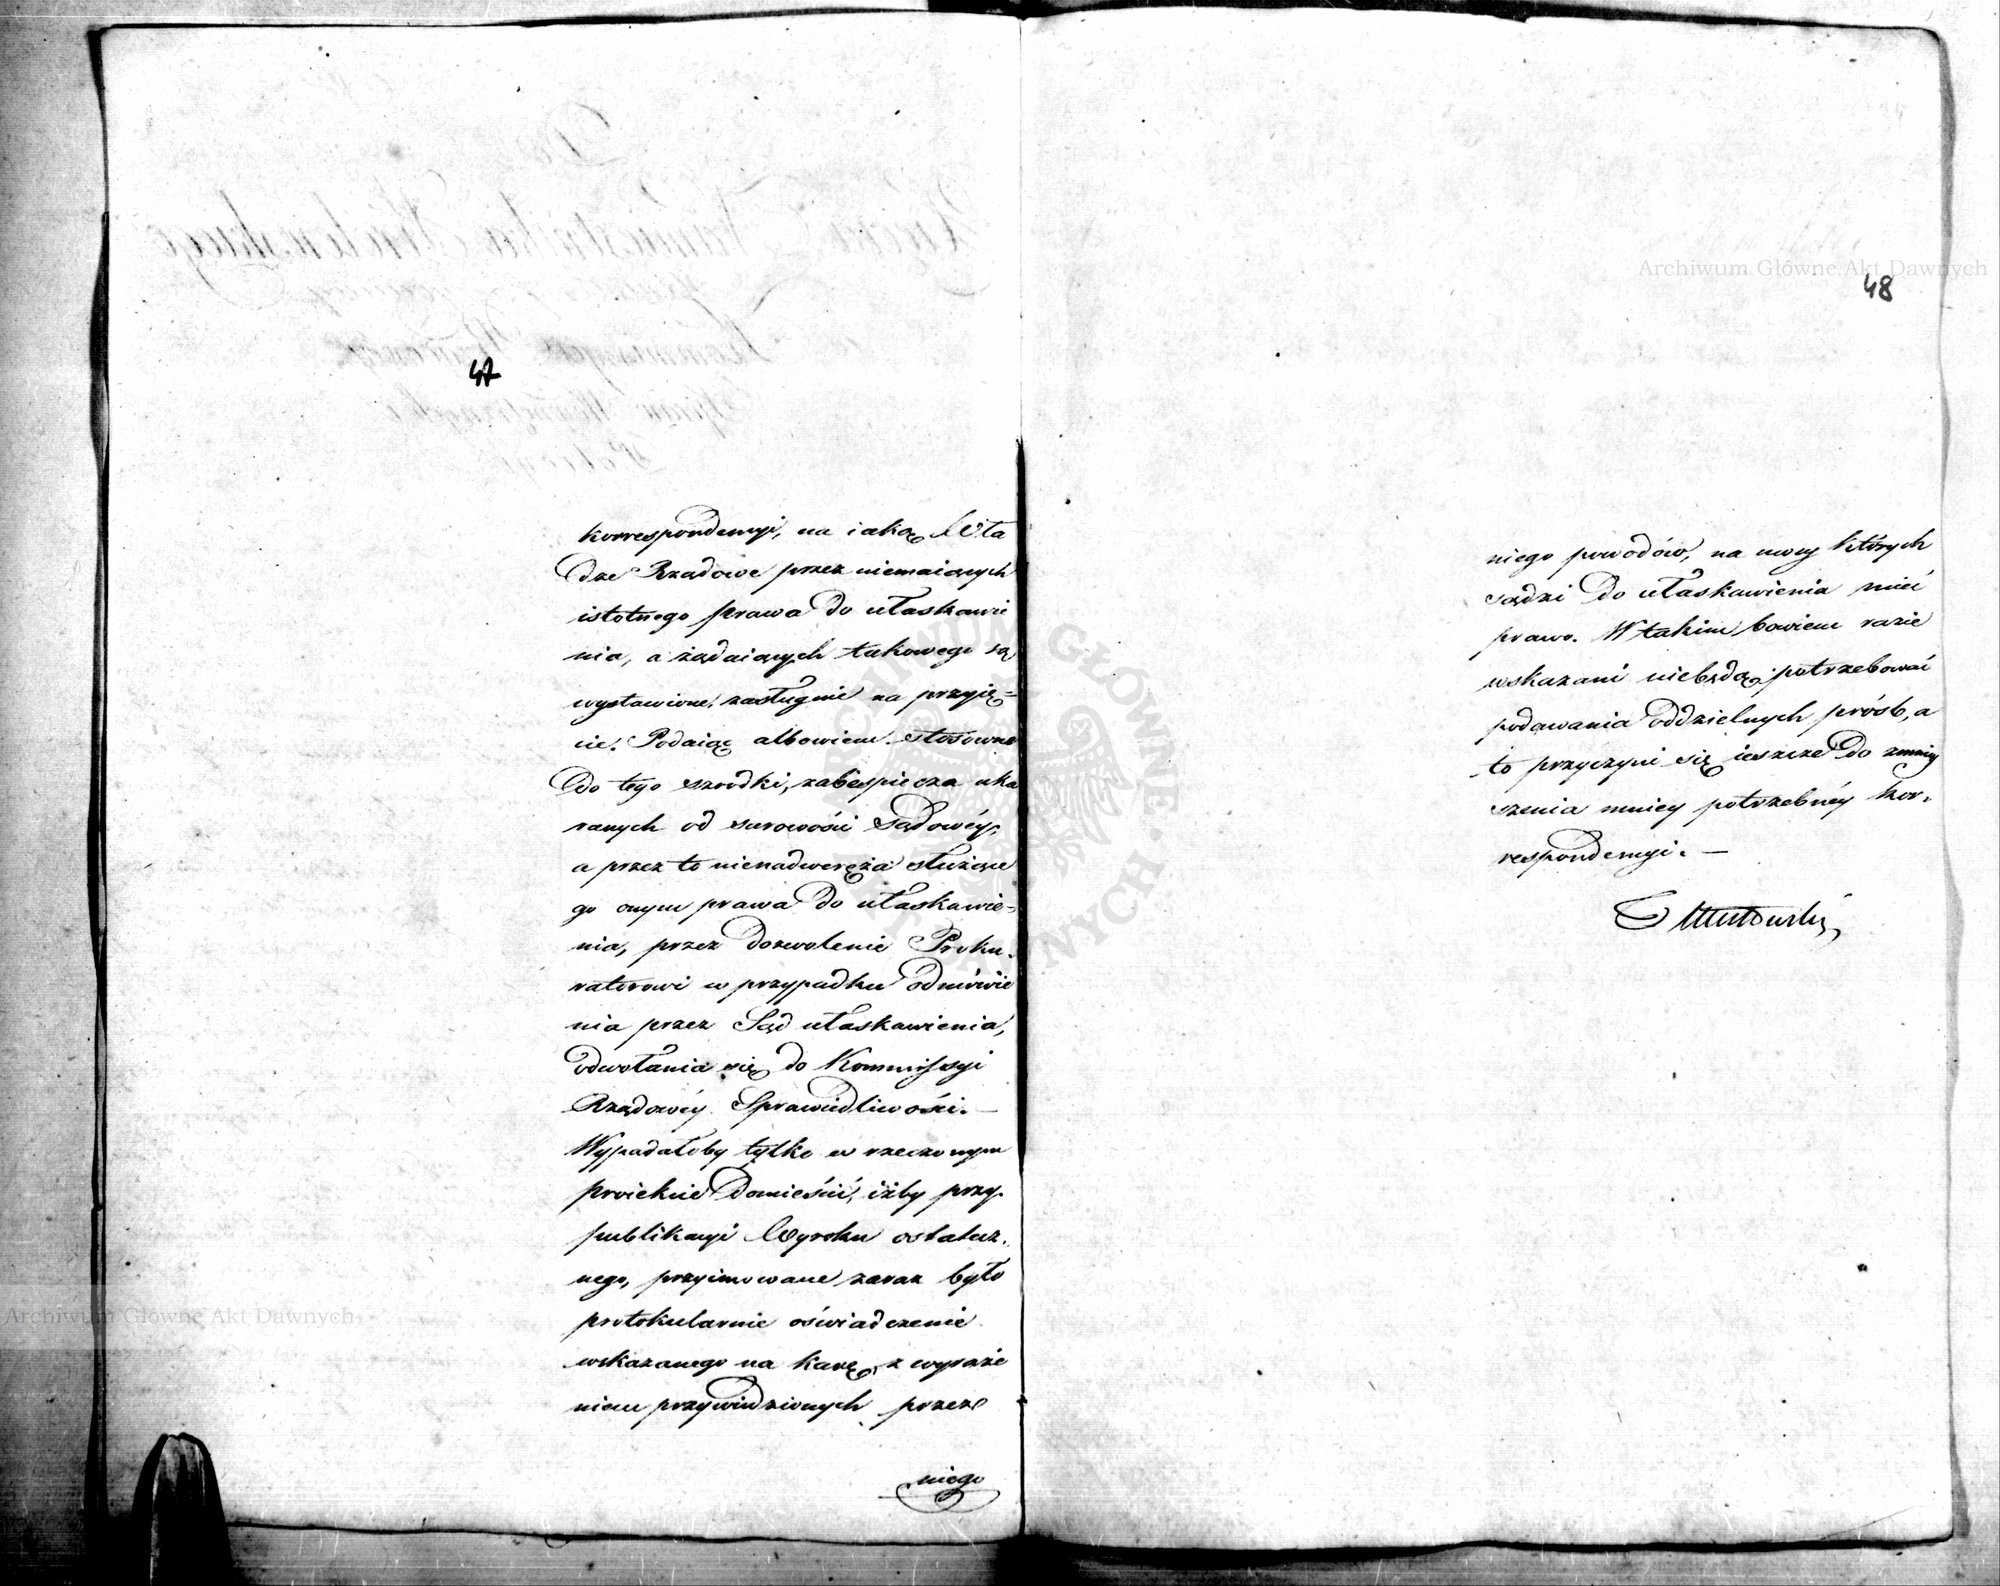 47
korrespondencyi, na iaką Wła
dze Rządowe przez niemaiących
istotnego prawa do ułaskawie
nia, a żądaiących takowego są
wystawione, zasługuie na przyię=
cie. Podaiąc albowiem stosowne
do tego szrodki, zabespiecza uka
ranych od surowości Sądowéy,
a przez to nienadweręża służące
go onym prawa do ułaskawie=
nia, przez dozwolenie Proku=
ratorowi w przypadku odmówie
nia przez Sąd ułaskawienia,
odwołania się do Kommissyi
Rządowéy Sprawiedliwości. —
Wypadałoby tylko w rzeczonym
proiekcie domieścić, iżby przy
publikacyi Wyroku ostatecz=
nego, przyimowane zaraz było
protokularnie oświadczenie
wskazanego na karę, z wyraże
niem przywiedzionych przez
niego
48
niego powodów, na mocy których
sądzi do ułaskawienia mieć
prawo. W takim bowiem razie
wskazani niebędą potrzebować
podawania oddzielnych próśb, a
to przyczyni się ieszcze do zmniey
szenia mniey potrzebnéy kor=
respondencyi. —
Archiwum Główne Akt Dawnych
Archiwum Główne Akt Dawnych
ARCHIWUM GŁÓWNE AKT DAWNYCH